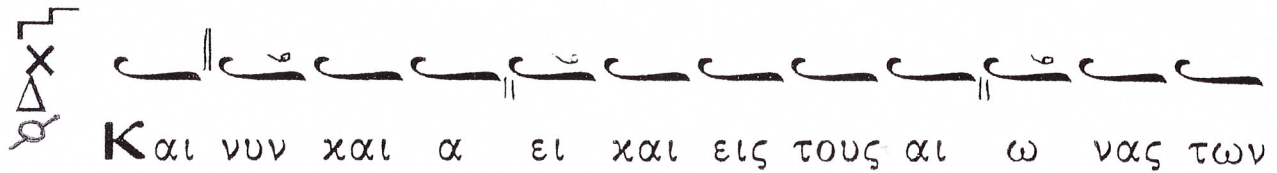 Και νυν και α ει και εις τους αι ω νας των